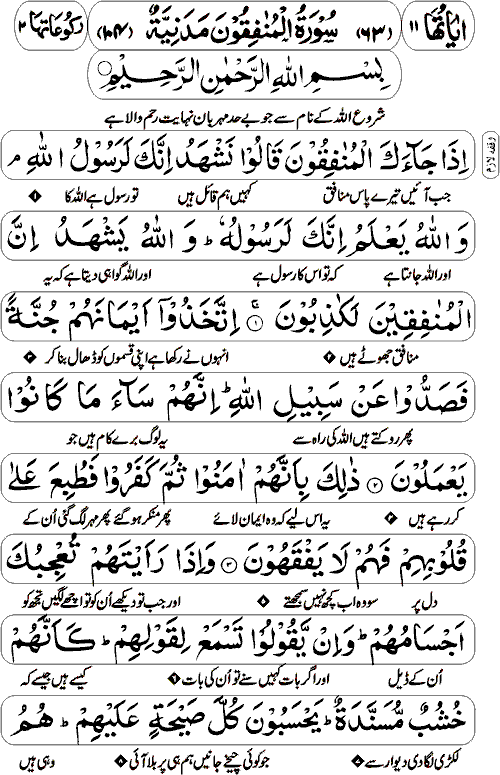 اٰیَاتُهَا ۱۱ (۶۳) سُوْرَۃُ الْمُنٰفِقُوْنَ مَدَنِیَّۃٌ (۱۰۴) رُکُوْعَاتُهَا ۲
بِسْمِ اللّٰهِ الرَّحْمٰنِ الرَّحِیْمِ
شروع اللہ کے نام سے جو بے حد مہربان نہایت رحم والا ہے
اِذَا جَآءَكَ الْمُنٰفِقُوْنَ قَالُوْا نَشْهَدُ اِنَّكَ لَرَسُوْلُ اللّٰهِ ۘ وقف لازم
جب آئیں تیرے پاس منافق کہیں ہم قائل ہیں تو رسول ہے اللہ کا
وَ اللّٰهُ یَعْلَمُ اِنَّكَ لَرَسُوْلُهٗ ؕ وَ اللّٰهُ یَشْهَدُ اِنَّ
اور اللہ جانتا ہے کہ تو اس کا رسول ہے اور اللہ گواہی دیتا ہے کہ یہ
الْمُنٰفِقِیْنَ لَكٰذِبُوْنَ ۚ﴿۱﴾ اِتَّخَذُوْۤا اَیْمَانَهُمْ جُنَّةً
منافق جھوٹے ہیں انہوں نے رکھا ہے اپنی قسموں کو ڈھال بنا کر
فَصَدُّوْا عَنْ سَبِیْلِ اللّٰهِ ؕ اِنَّهُمْ سَآءَ مَا كَانُوْا
پھر روکتے ہیں اللہ کی راہ سے یہ لوگ برے کام ہیں جو
یَعْمَلُوْنَ ﴿۲﴾ ذٰلِكَ بِاَنَّهُمْ اٰمَنُوْا ثُمَّ كَفَرُوْا فَطُبِعَ عَلٰى
کر رہے ہیں یہ اس لیے کہ وہ ایمان لائے پھر منکر ہو گئے پھر مہر لگ گئی اُن کے
قُلُوْبِهِمْ فَهُمْ لَا یَفْقَهُوْنَ ﴿۳﴾ وَ اِذَا رَاَیْتَهُمْ تُعْجِبُكَ
دل پر سو وہ اب کچھ نہیں سمجھتے اور جب تو دیکھے اُن کو تو اچھے لگیں تجھ کو
اَجْسَامُهُمْ ؕ وَ اِنْ یَّقُوْلُوْا تَسْمَعْ لِقَوْلِهِمْ ؕ كَاَنَّهُمْ
اُن کے ڈیل اور اگر بات کہیں سنے تو اُن کی بات کیسے ہیں جیسے کہ
خُشُبٌ مُّسَنَّدَةٌ ؕ یَحْسَبُوْنَ كُلَّ صَیْحَةٍ عَلَیْهِمْ ؕ هُمُ
لکڑی لگا دی دیوار سے جو کوئی چیخے جانیں ہم ہی پر بلا آئی وہی ہیں